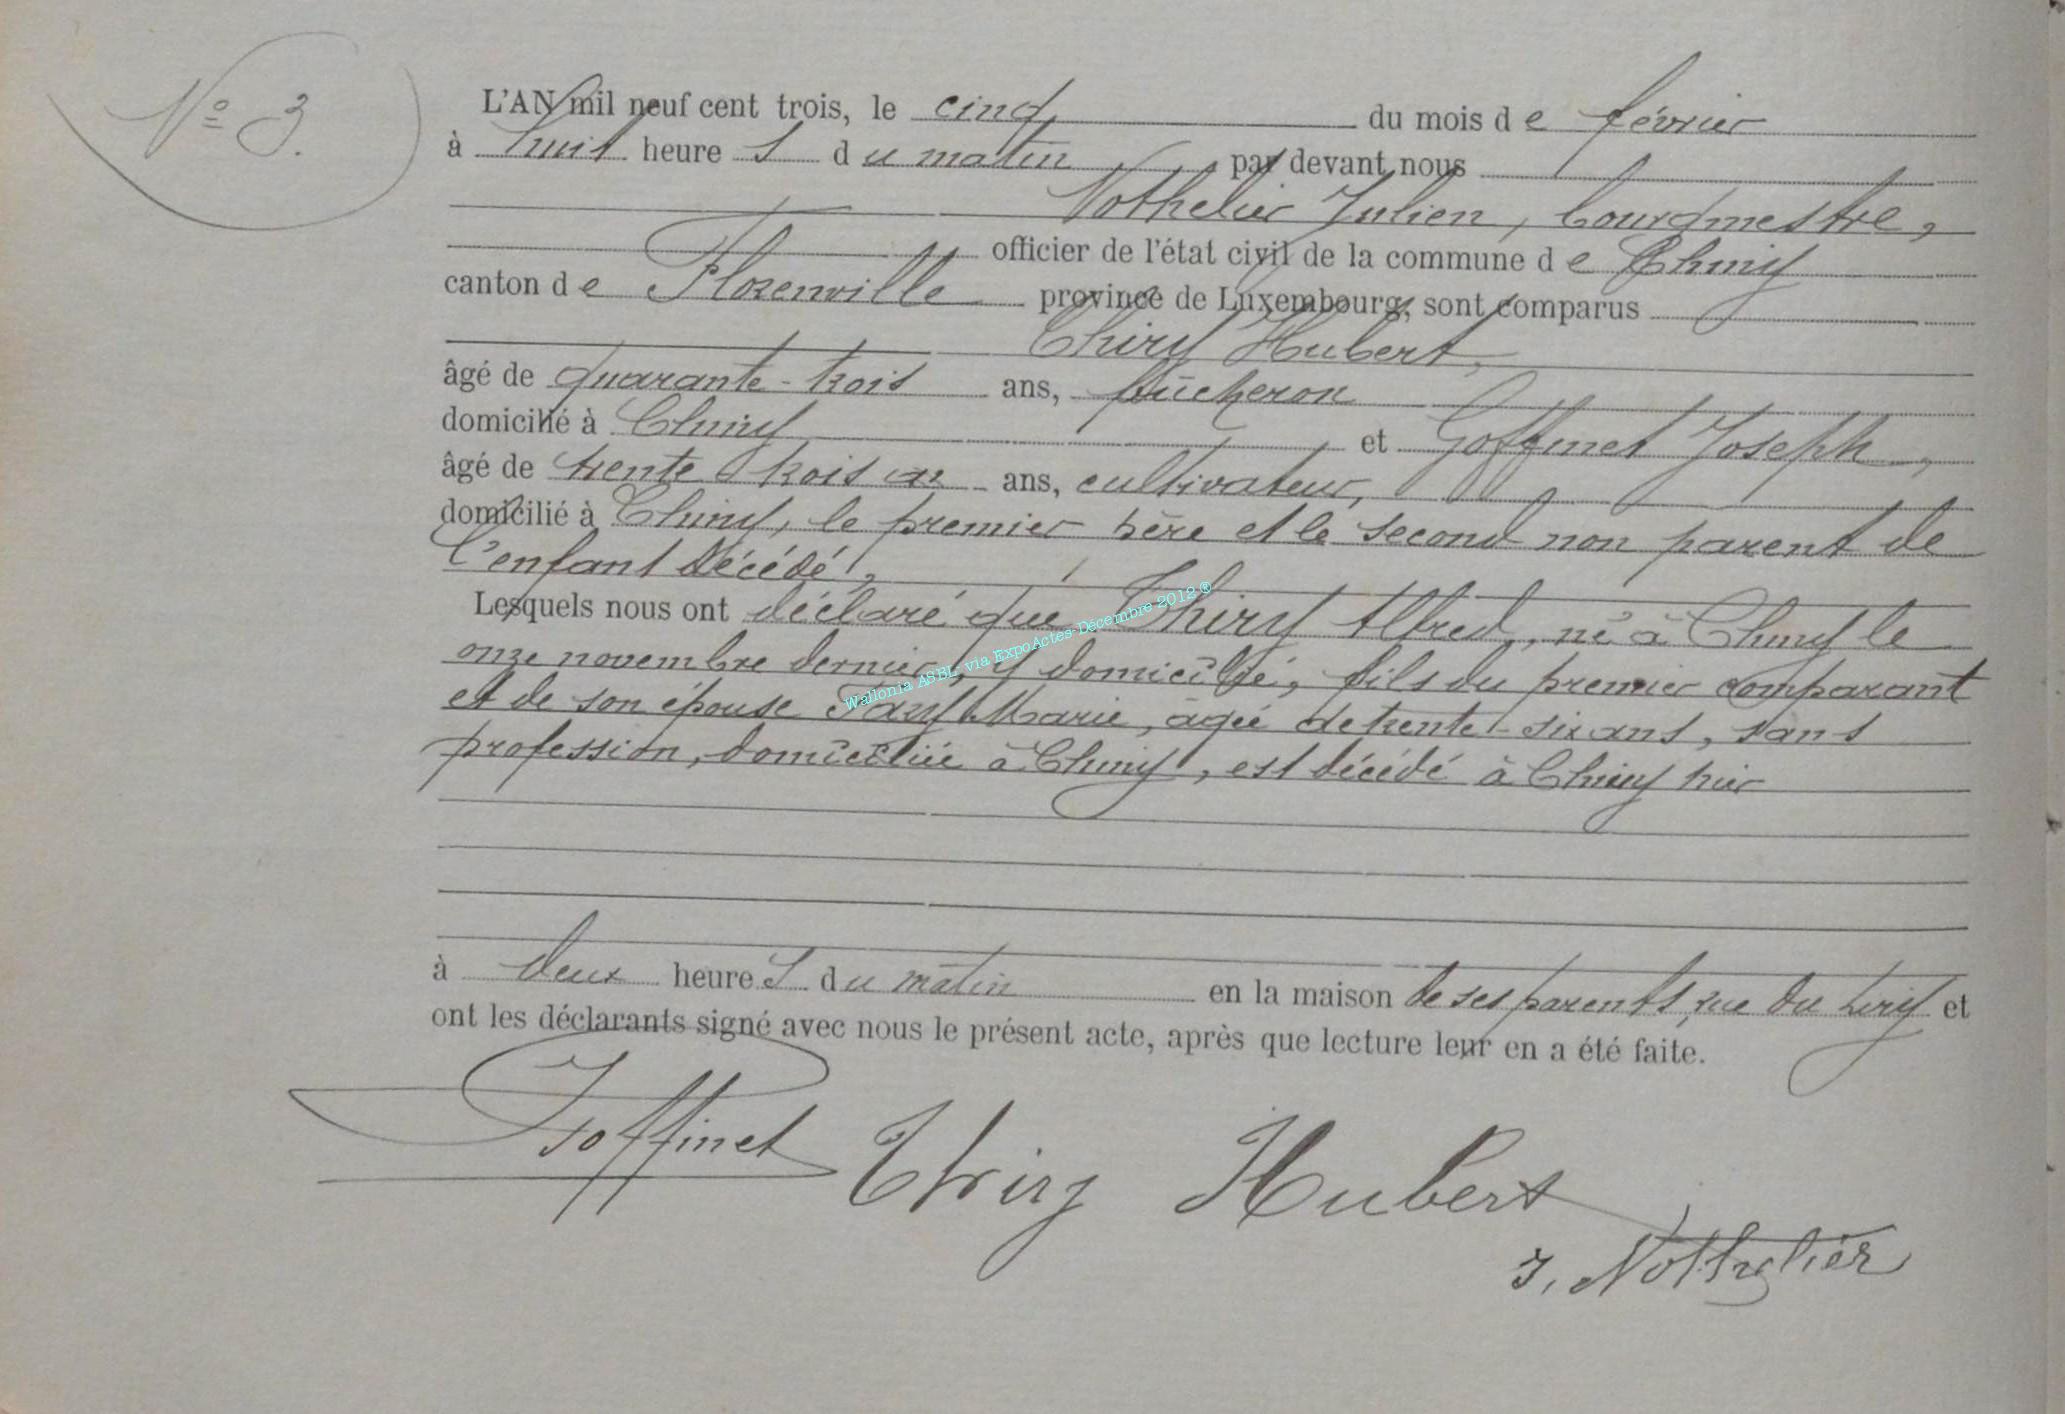 Nº 3.
L'AN mil neuf cent trois, le cinq du mois de février
à huit heures du matin par devant nous
Nothelier Julien, bourgmestre,
officier de l'état civil de la commune de Chiny
canton de Florenville province de Luxembourg, sont comparus
Thiry Hubert,
âgé de quarante-trois ans, bûcheron
domicilié à Chiny et Goffinet Joseph,
âgé de trente trois ans, cultivateur,
domicilié à Chiny, le premier père et le second non parent de
l'enfant décédé,
Lesquels nous ont déclaré que Thiry Alfred, né à Chiny le
onze novembre dernier, y domicilié, fils du premier comparant
et de son épouse Marie, âgée de trente-six ans, sans
profession, domiciliée à Chiny, est décédé à Chiny hier
à deux heures du matin en la maison de ses parents, rue du et
ont les déclarants signé avec nous le présent acte, après que lecture leur en a été faite.
Goffinet Thiry Hubert
J. Nothelier
Wallonia ASBL via ExpoActes-Décembre 2012 ®